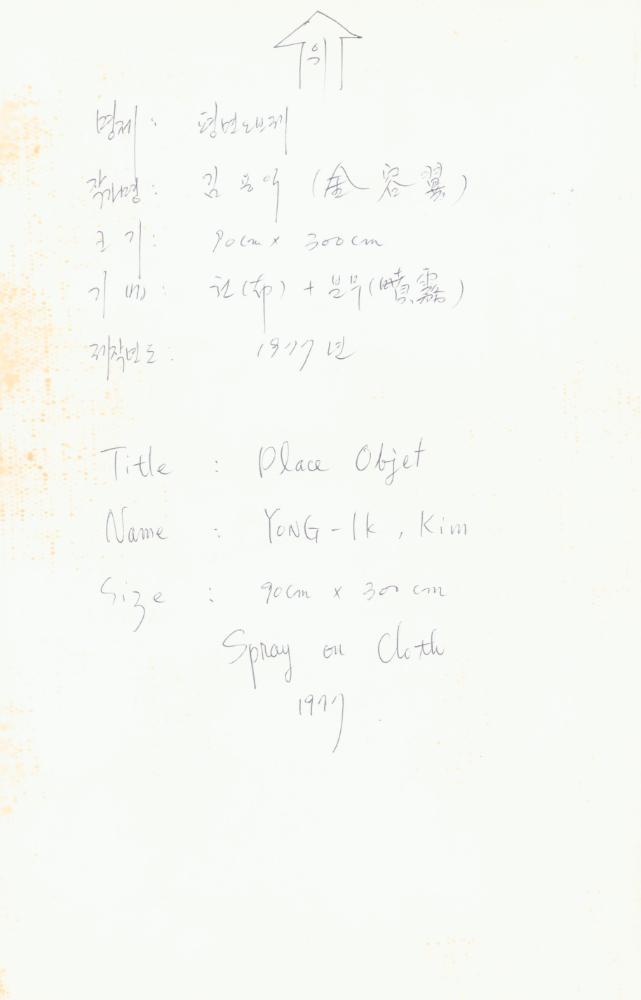 위
명제 : 평면오브제
작가명 : 김용익 (金容翼)
크기 : 90cm x 300cm
기법 : 천(布) + 분무(噴霧)
제작년도 : 1977년
Title : Place Objet
Name : YONG-Ik, Kim
Size : 90cm x 300cm
Spray on Cloth
1977